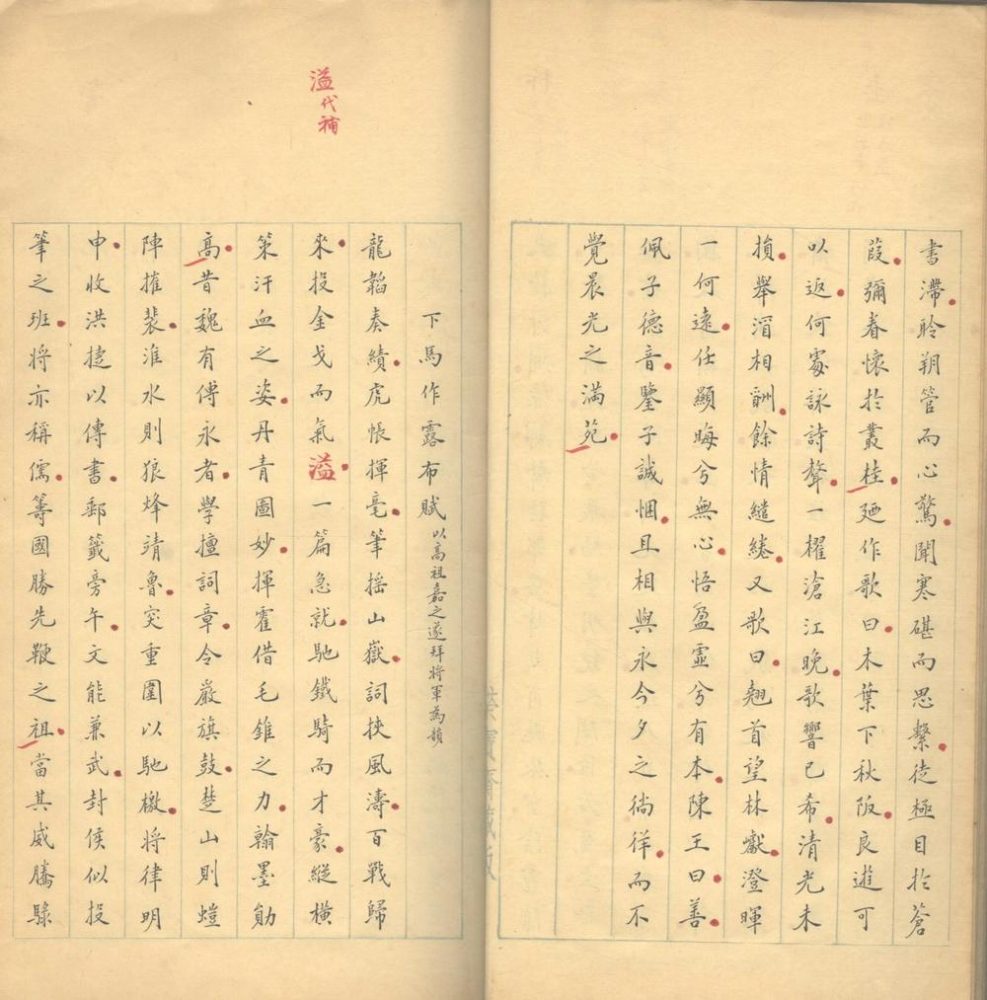 書滯聆朔管而心驚聞寒碪而思繫徒極目於蒼
葭彌眷懷於叢桂廼作歌曰木葉下秋阪良遊可
以返何處詠詩聲一櫂滄江晚歌響已希清光未
損舉酒相酬餘情繾綣又歌曰翹首望林巘澄暉
一何遠任顯晦兮無心悟盈虛兮有本陳王曰善
佩子德音鑒子誠悃且相與永今夕之徜徉而不
覺晨光之滿苑
溢代補
下馬作露布賦以高祖嘉之遂拜將軍為韻
龍韜奏績虎帳揮毫筆搖山嶽詞挾風濤百戰歸
來投金戈而氣溢一篇急就馳鐵騎而才豪縱橫
策汗血之姿丹青圖妙揮霍借毛錐之力翰墨勛
高昔魏有傅永者學擅詞章令嚴旗鼓楚山則螘
陣摧裴淮水則狼烽靖魯突重圍以馳檄將律明
申收洪捷以傳書郵籤旁午文能兼武封侯似投
筆之班將亦稱儒籌國勝先鞭之祖當其威騰縣